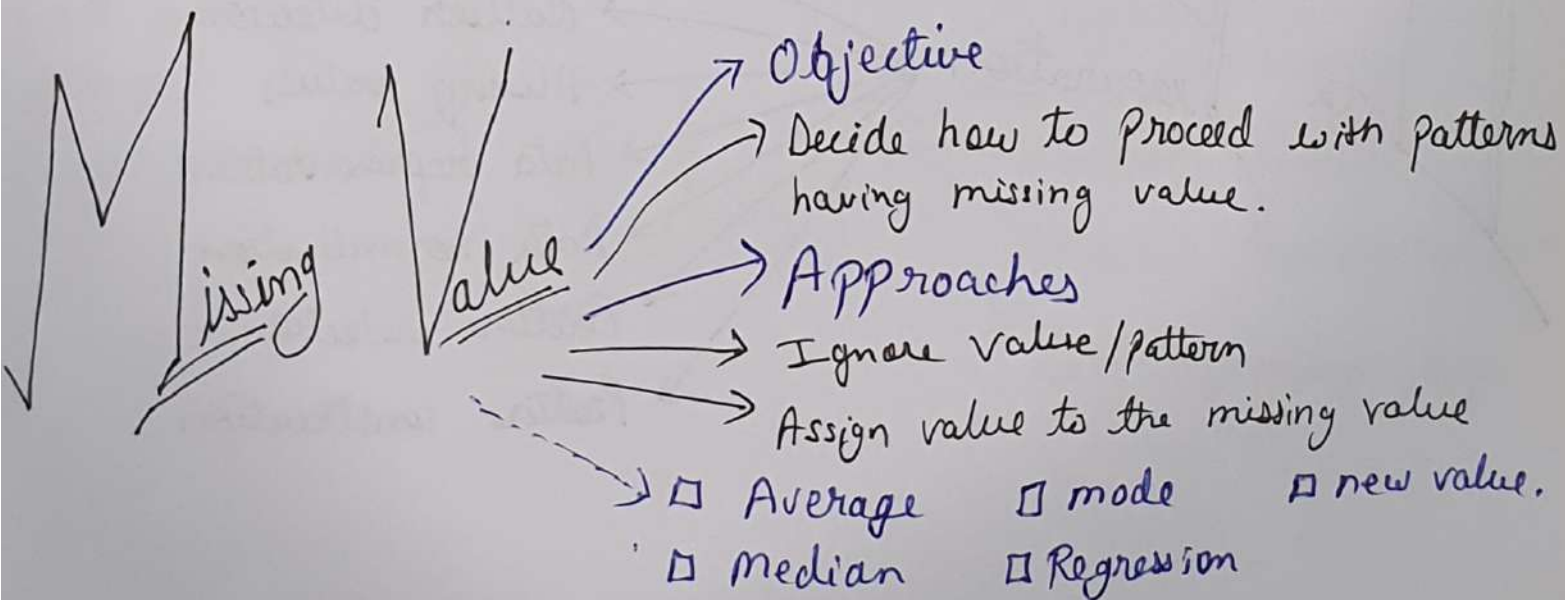 Missing Value
Objective
Decide how to proceed with patterns
having missing value.
Approaches
Ignore value/pattern
Assign value to the missing value
Average mode new value.
Median Regression